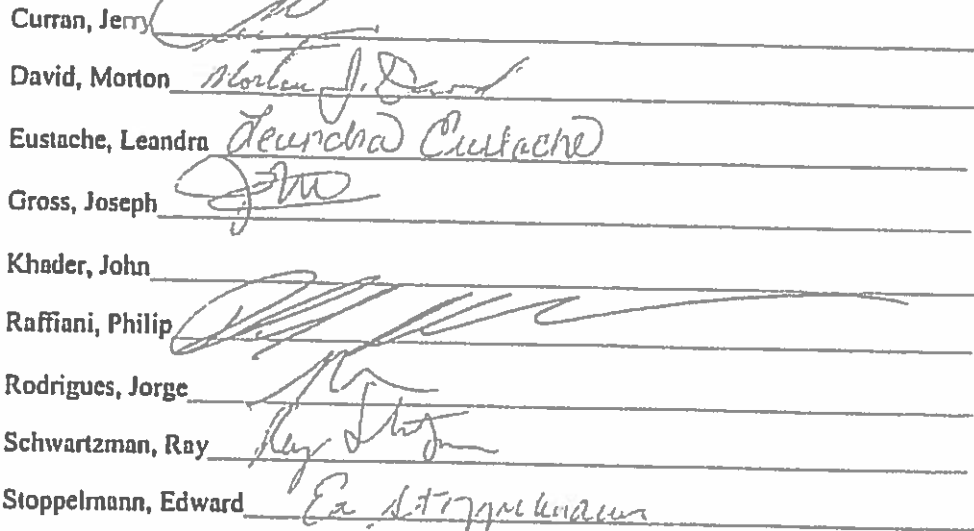 Curran, Jerry
David, Morton Morton J. David
Eustache, Leandra Leandra Eustache
Gross, Joseph
Khader, John
Raffiani, Philip
Rodrigues, Jorge
Schwartzman, Ray Ray
Stoppelmann, Edward